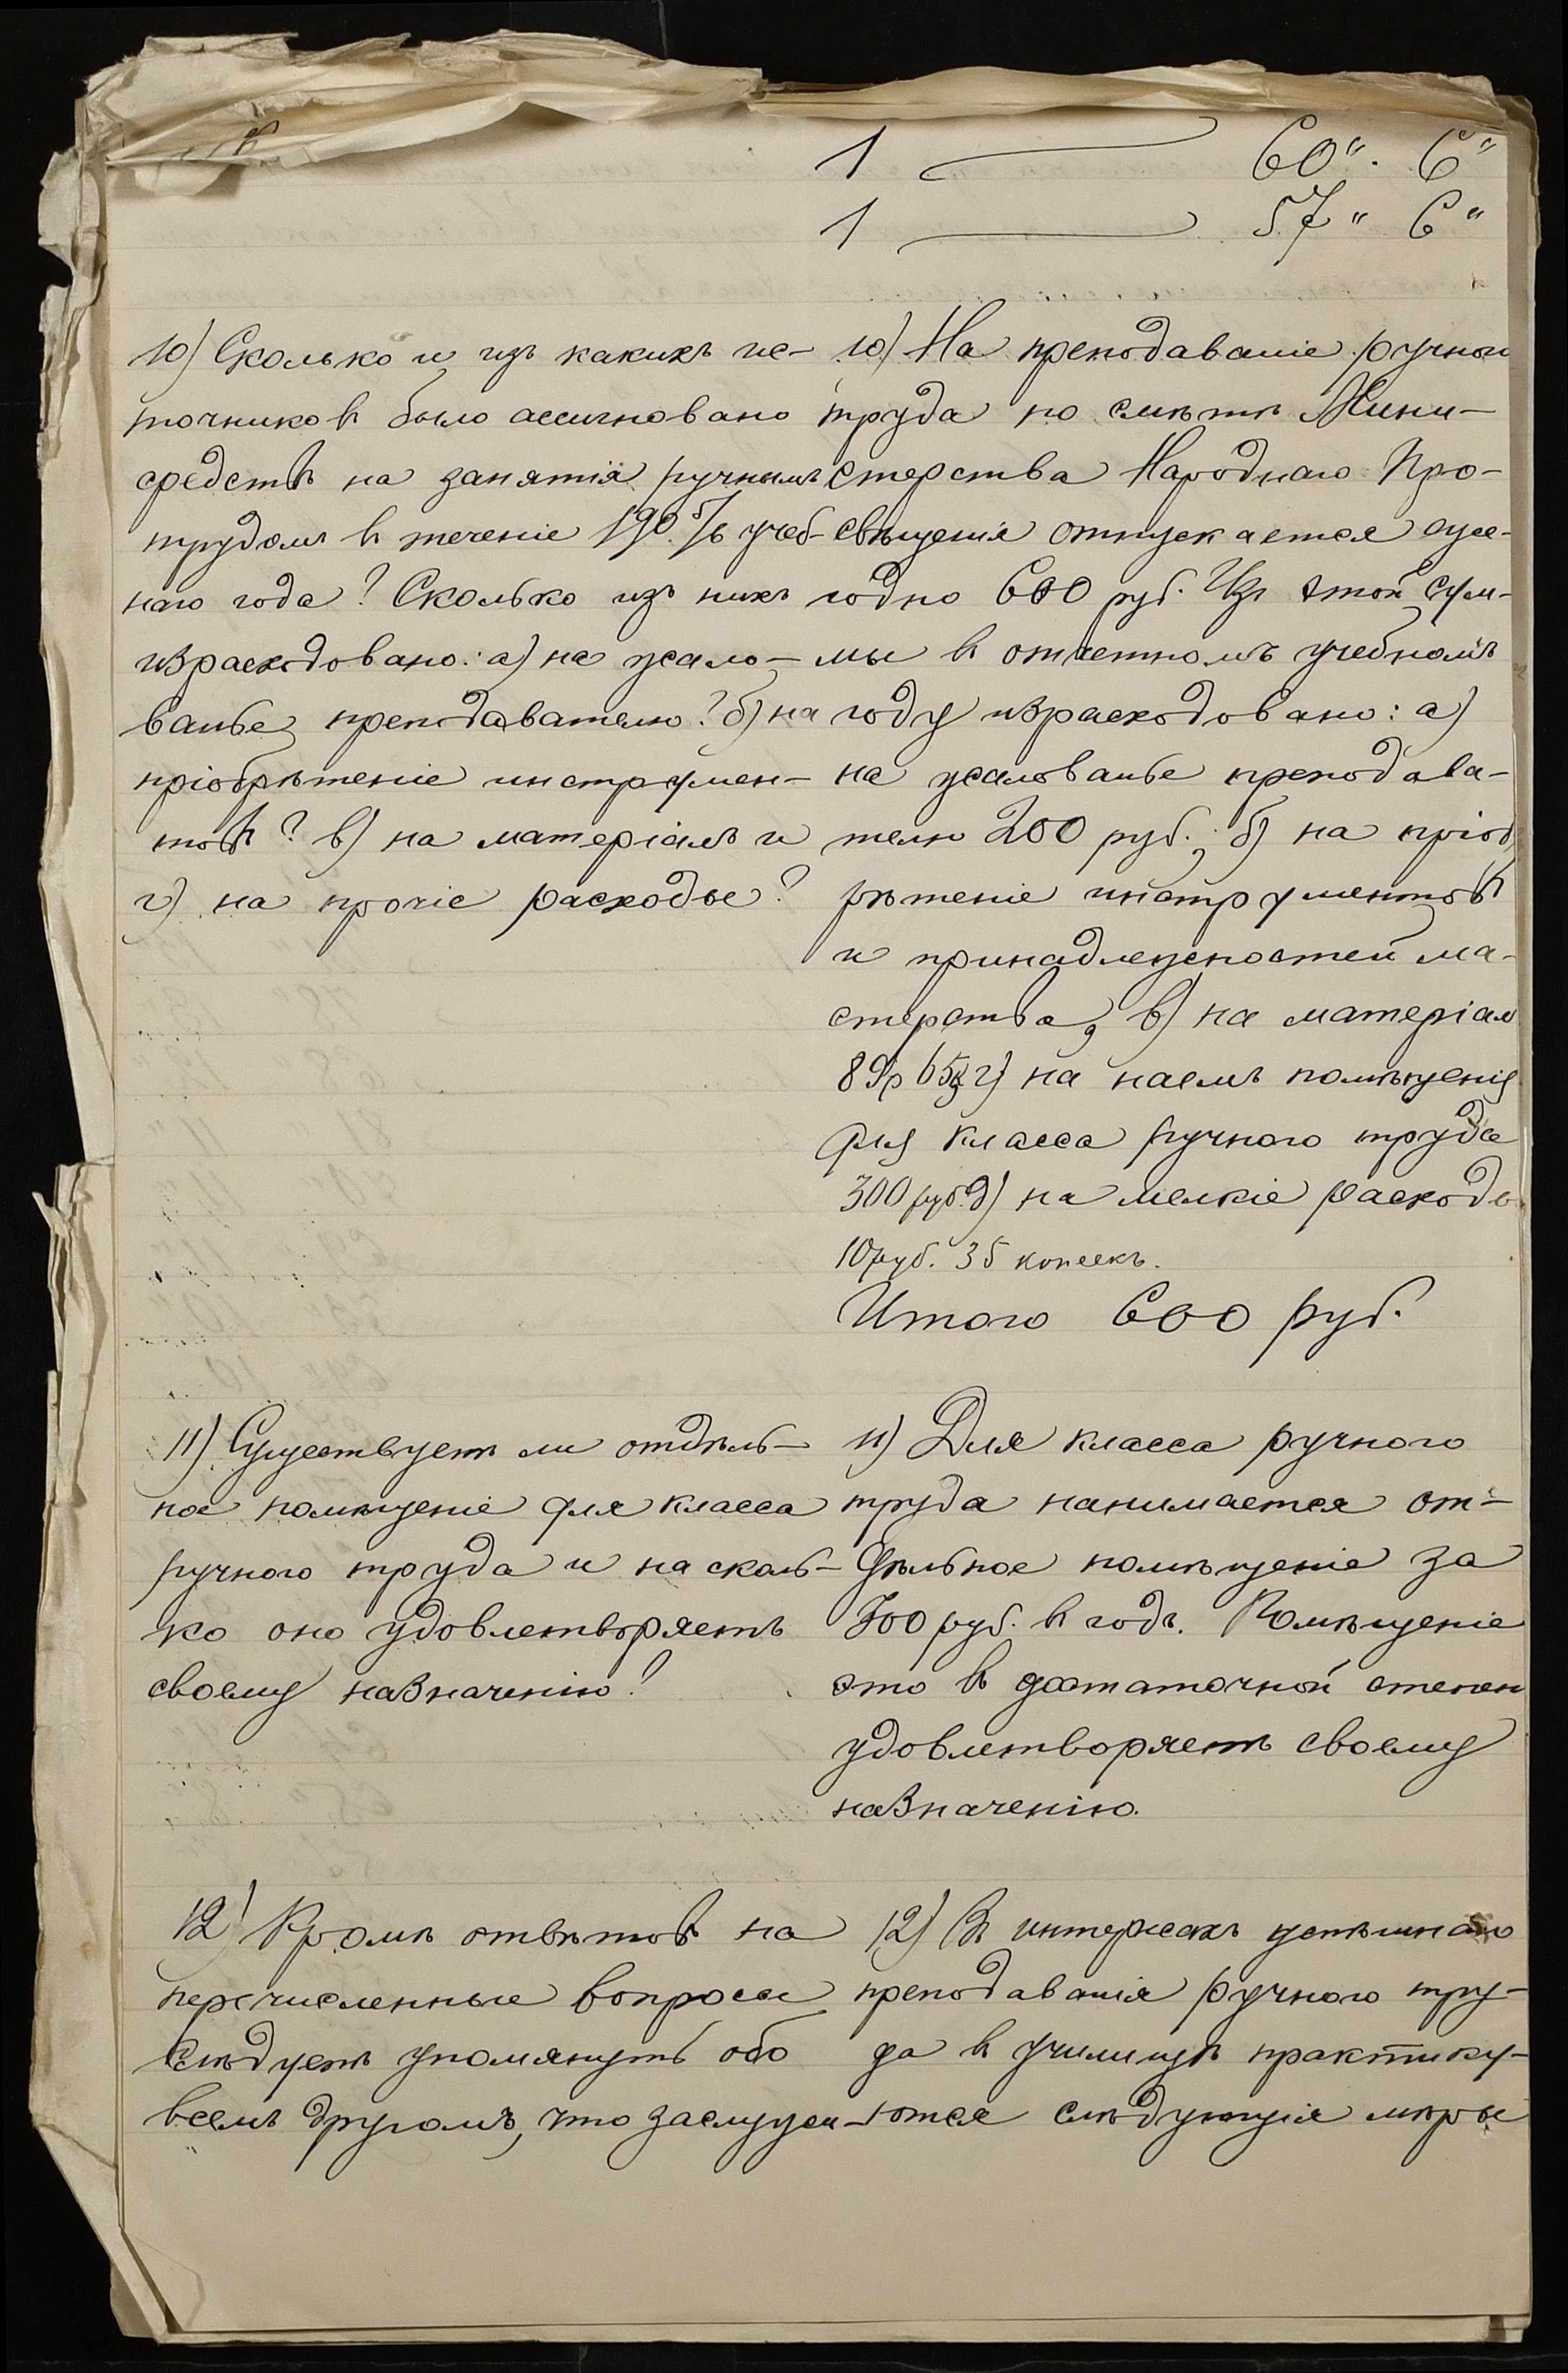 1 — 60 " 6 "
1 — 57 " 6 "
10) Сколько и изъ какихъ ис-
точниковъ было ассигновано
средствъ на занятія ручнымъ
трудомъ въ теченіе 190 5/6 учеб-
наго года? Сколько изъ нихъ
израсходовано: а) на жало-
ванье преподавателю? б) на
пріобрѣтеніе инструмен-
товъ? в) на матеріалъ и
г) на прочіе расходы?
10) На преподаваніе ручного
труда по смѣтѣ Мини-
стерства Народнаго Про-
свѣщенія отпускается еже-
годно 600 руб. Изъ этой сум-
мы въ отчетномъ учебномъ
году израсходовано: а)
на жалованье преподава-
телю 200 руб.; б) на пріоб-
рѣтеніе инструментовъ
и принадлежностей ма-
стерства, в) на матеріалъ
89р 65к г) на наемъ помѣщенія
для класса ручного труда
300 руб. д) на мелкіе расходы
10 руб. 35 копеекъ.
Итого 600 руб.
11) Существуетъ ли отдѣль-
ное помѣщеніе для класса
ручного труда и на сколь-
ко оно удовлетворяетъ
своему назначенію?
11) Для класса ручного
труда нанимается от-
дѣльное помѣщеніе за
300 руб. въ годъ. Помѣщеніе
это въ достаточной степени
удовлетворяетъ своему
назначенію.
12) Кромѣ отвѣтовъ на
перечисленные вопросы
слѣдуетъ упомянуть обо
всемъ другомъ, что заслужи-
12) Въ интересахъ успѣшнаго
преподаванія ручного тру-
да въ училищѣ практику-
ются слѣдующія мѣры